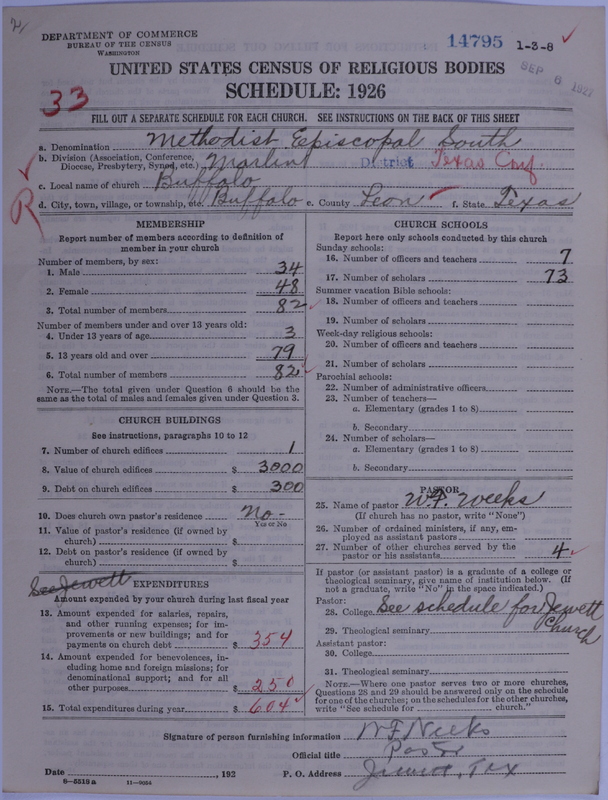 DEPARTMENT OF COMMERCE
BUREAU OF THE CENSUS
WASHINGTON
14795 1-3-8
SEP 6 1927
UNITED STATES CENSUS OF RELIGIOUS BODIES
SCHEDULE: 1926
33
FILL OUT A SEPARATE SCHEDULE FOR EACH CHURCH. SEE INSTRUCTIONS ON THE BACK OF THIS SHEET
a. Denomination Methodist Episcopal South
b. Division (Association, Conference, Diocese, Presbytery, Synod, etc.) Marlin District Texas Conf.
c. Local name of church Buffalo
R
d. City, town, village, or township, etc. Buffalo e. County Leon f. State Texas
MEMBERSHIP
Report number of members according to definition of
member in your church
Number of members, by sex:
1. Male 34
2. Female 48
3. Total number of members 82
Number of members under and over 13 years old:
4. Under 13 years of age 3
5. 13 years old and over 79
6. Total number of members 82
NOTE.—The total given under Question 6 should be
same as the total of males and females given under Question 3.
CHURCH BUILDINGS
See instructions, paragraphs 10 to 12
7. Number of church edifices 1
8. Value of church edifices $ 3000
9. Debt on church edifices $ 300
10. Does church own pastor's residence No-
Yes or No
11. Value of pastor's residence (if owned by
church) $
12. Debt on pastor's residence (if owned by
church) $
See Jewett
EXPENDITURES
Amount expended by your church during last fiscal year
13. Amount expended for salaries, repairs,
and other running expenses; for im-
provements or new buildings; and for
payments on church debt $ 354
14. Amount expended for benevolences, in-
cluding home and foreign missions; for
denominational support; and for all
other purposes $ 250
15. Total expenditures during year $ 604
CHURCH SCHOOLS
Report here only schools conducted by this church
Sunday schools:
16. Number of officers and teachers 7
17. Number of scholars 73
Summer vacation Bible schools:
18. Number of officers and teachers
19. Number of scholars
Week-day religious schools:
20. Number of officers and teachers
21. Number of scholars
Parochial schools:
22. Number of administrative officers
23. Number of teachers—
a. Elementary (grades 1 to 8)
b. Secondary
24. Number of scholars—
a. Elementary (grades 1 to 8)
b. Secondary
PASTOR
25. Name of pastor W.F. Weeks
(If church has no pastor, write "None")
26. Number of ordained ministers, if any, em-
ployed as assistant pastors
27. Number of other churches served by the
pastor or his assistants 4
If pastor (or assistant pastor) is a graduate of a college or
theological seminary, give name of institution below. (If
not a graduate, write "No" in the space indicated.)
Pastor:
28. College See schedule for Jewett
Church
29. Theological seminary
Assistant pastor:
30. College
31. Theological seminary
NOTE.—Where one pastor serves two or more churches,
Questions 28 and 29 should be answered only on the schedule
for one of the churches; on the schedules for the other churches,
write "See schedule for church."
Signature of person furnishing information W F Weeks
Official title Pastor
Date , 192 P. O. Address Jewett, Tex
8-5518a 11-9034